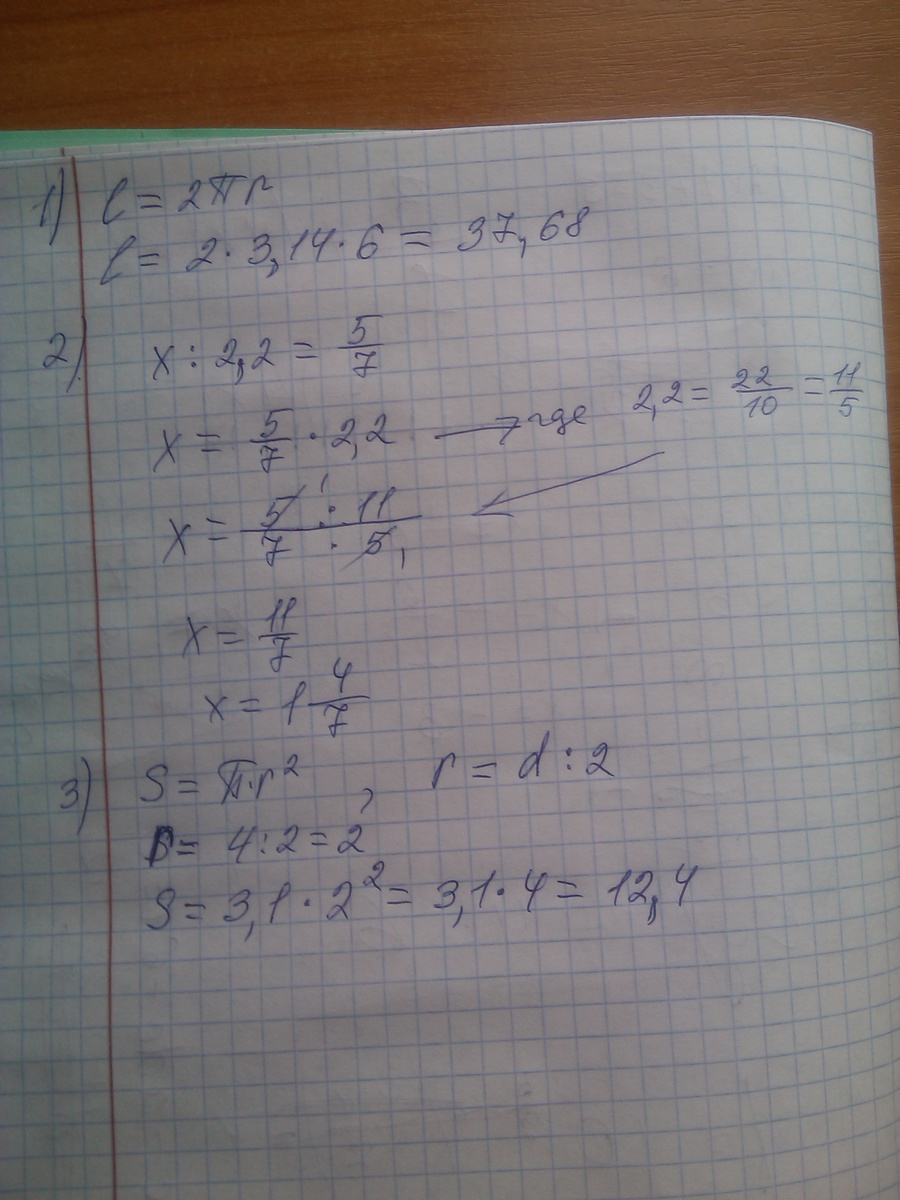 1) l = 2πr
l = 2 · 3,14 · 6 = 37,68
2) x : 2,2 = 5/7
x = 5/7 · 2,2 → где 2,2 = 22/10 = 11/5
x = 5 1 · 11 / 7 · 5 1
x = 11/7
x = 1 4/7
3) S = π·r², r = d : 2
r = 4 : 2 = 2
S = 3,1 · 2² = 3,1 · 4 = 12,4